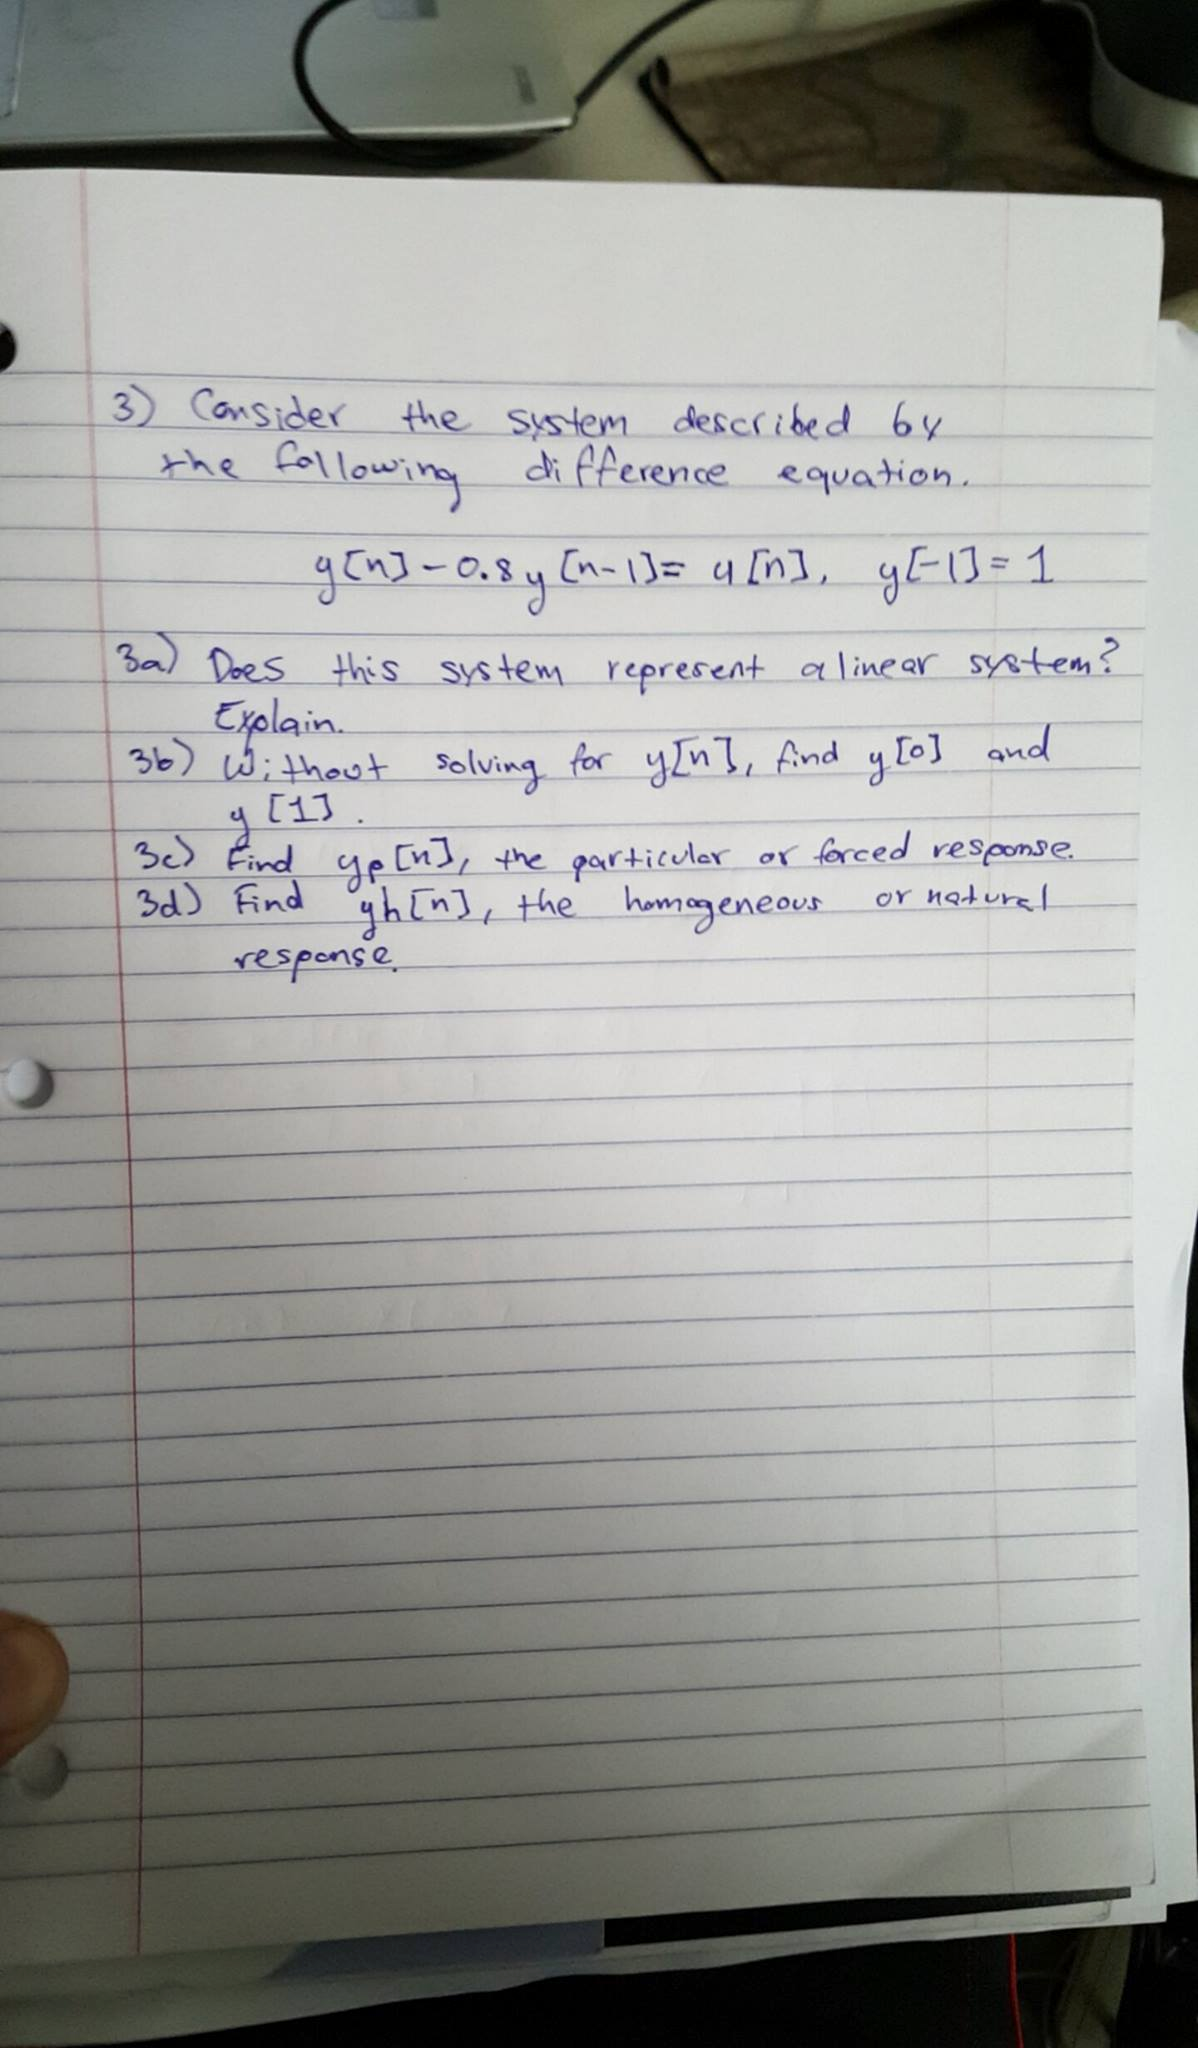 3) Consider the system described by
the following difference equation.
y[n] - 0.8y[n-1] = u[n], y[-1] = 1
3a) Does this system represent a linear system?
Explain.
3b) Without solving for y[n], find y[0] and
y[1].
3c) Find yp[n], the particular or forced response.
3d) Find yh[n], the homogeneous or natural
response.